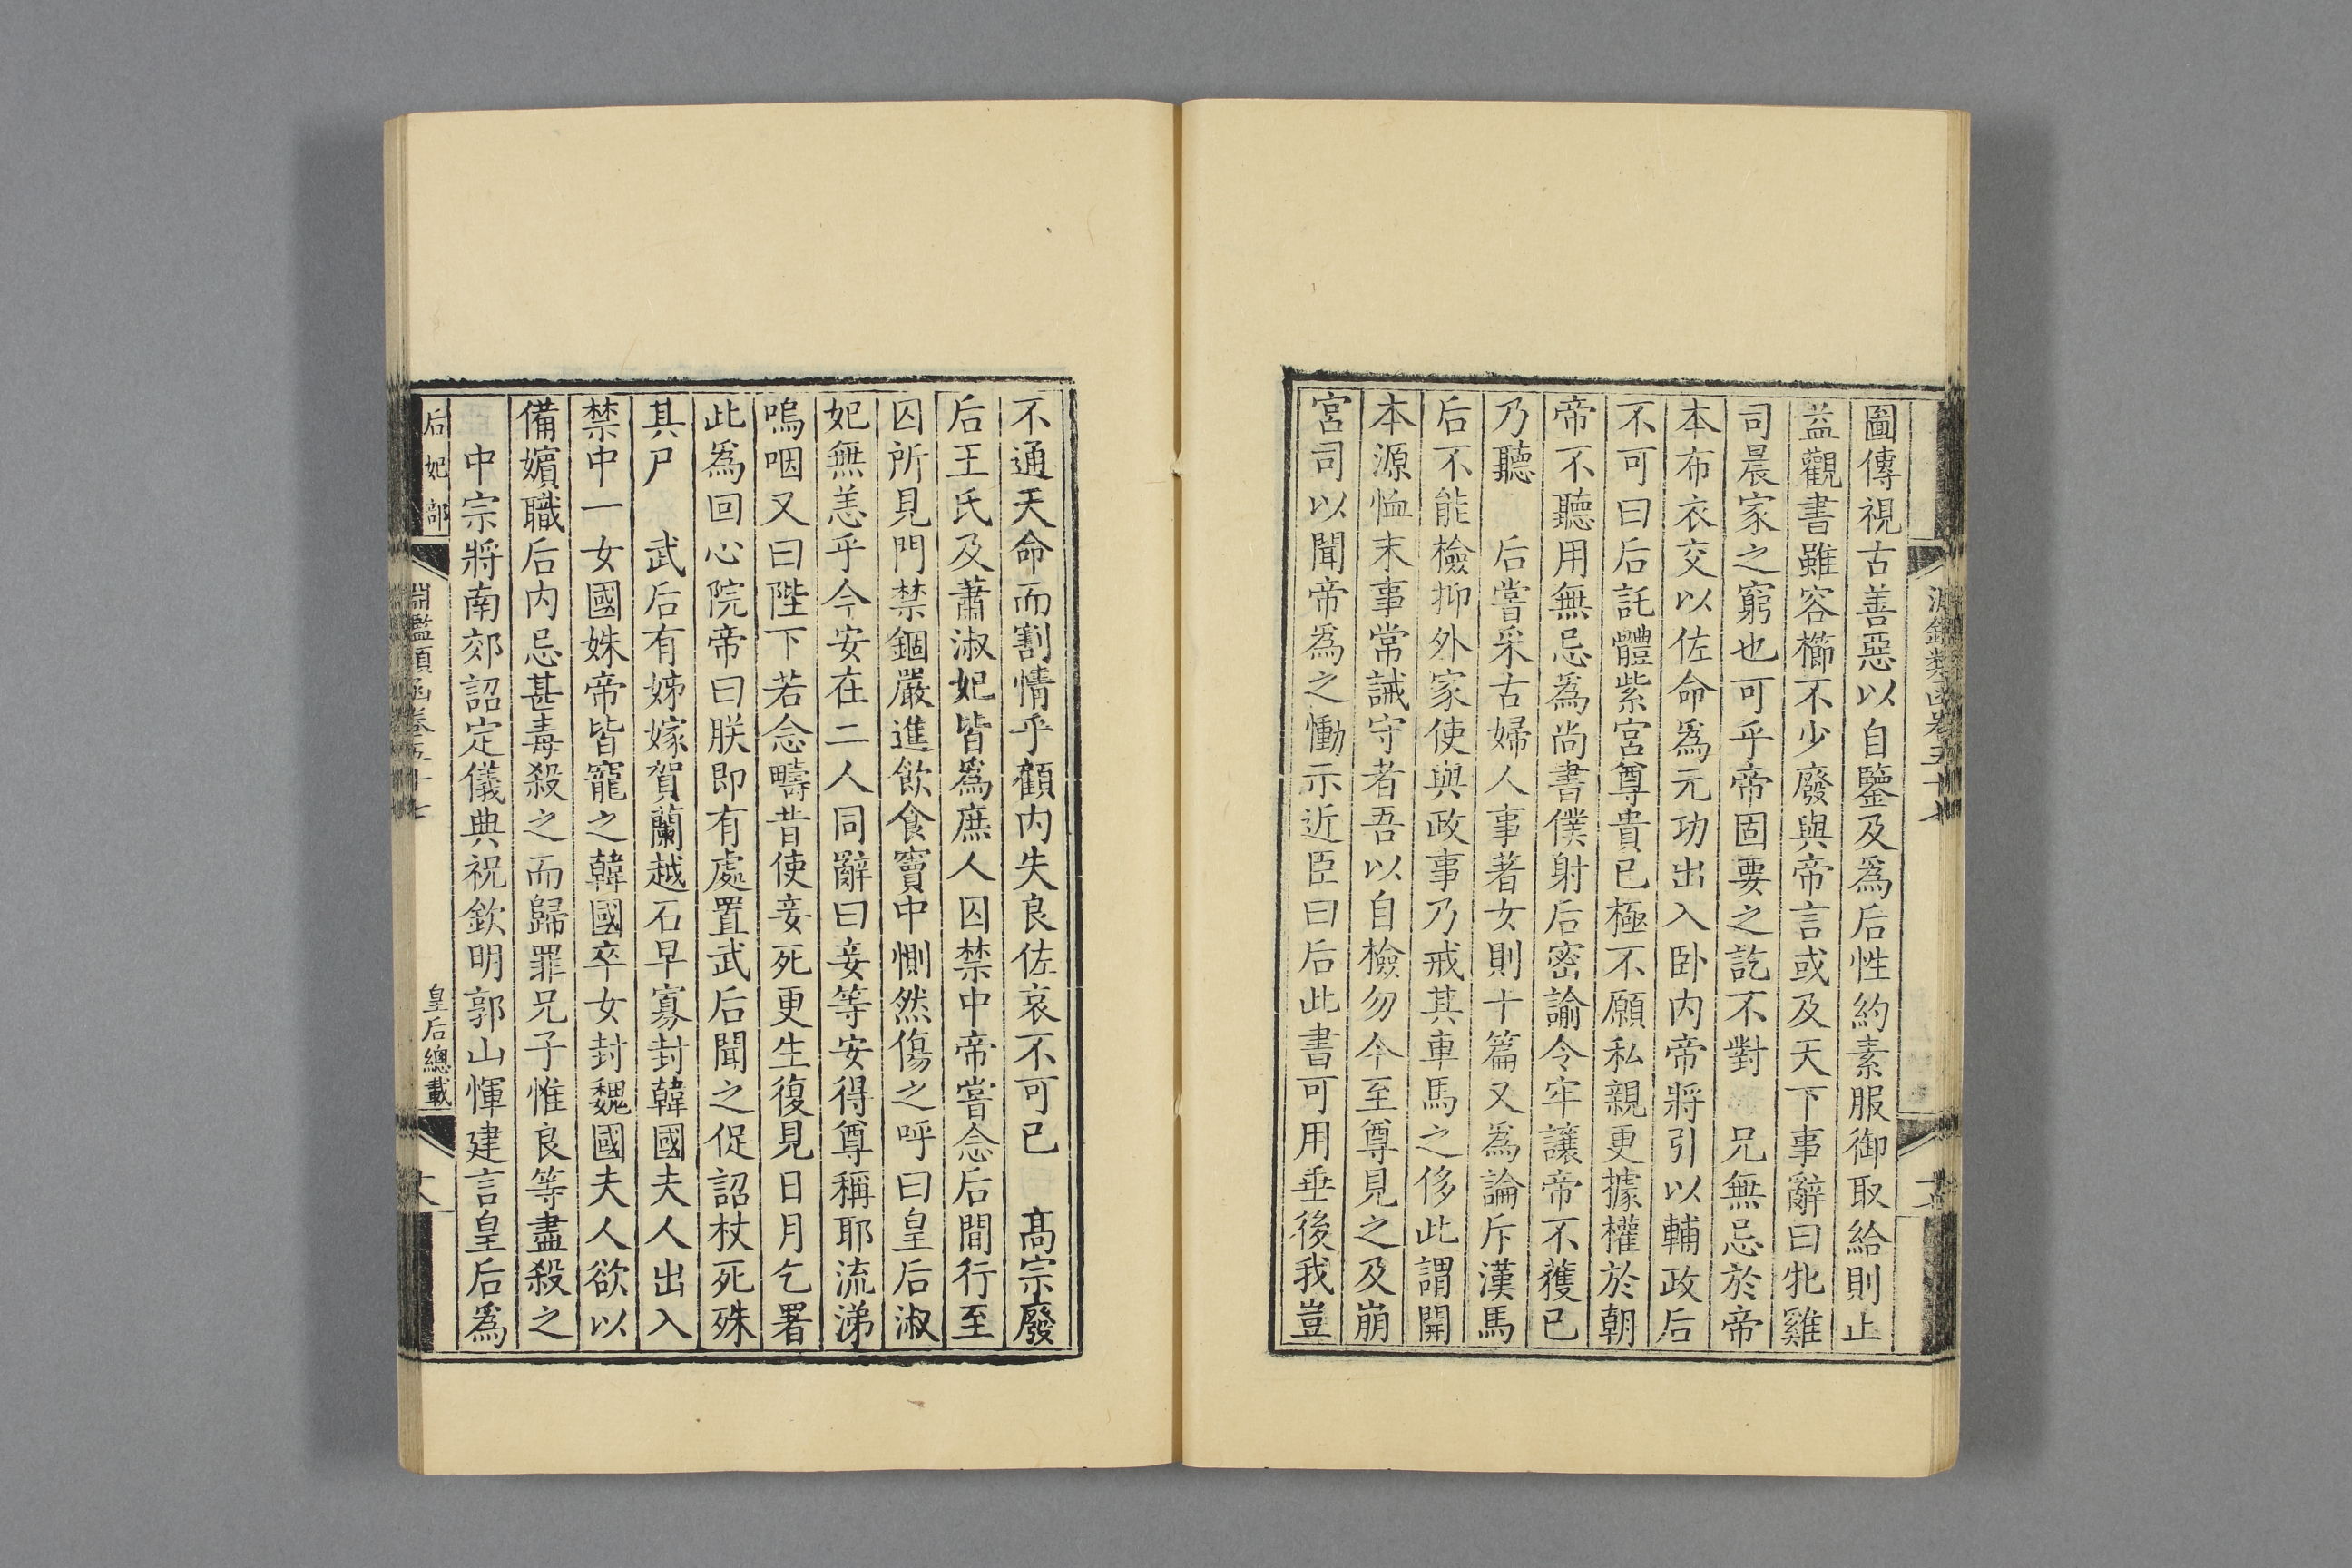 圖傳視古善惡以自鑒及爲后性約素服御取給則止
益觀書雖容櫛不少廢與帝言或及天下事辭曰牝雞
司晨家之窮也可乎帝固要之訖不對　兄無忌於帝
本布衣交以佐命爲元功出入卧内帝將引以輔政后
不可曰后託體紫宮尊貴已極不願私親更據權於朝
帝不聽用無忌爲尚書僕射后密諭令牢讓帝不獲已
乃聽　后嘗采古婦人事著女則十篇又爲論斥漢馬
后不能檢抑外家使與政事乃戒其車馬之侈此謂開
本源恤末事常誡守者吾以自檢勿今至尊見之及崩
宮司以聞帝爲之慟示近臣曰后此書可用垂後我豈
不通天命而割情乎顧内失良佐哀不可已　高宗廢
后王氏及蕭淑妃皆爲庶人囚禁中帝嘗念后間行至
囚所見門禁錮嚴進飲食竇中惻然傷之呼曰皇后淑
妃無恙乎今安在二人同辭曰妾等安得尊稱耶流涕
嗚咽又曰陛下若念疇昔使妾死更生復見日月乞署
此爲回心院帝曰朕即有處置武后聞之促詔杖死殊
其尸　武后有姊嫁賀蘭越石早寡封韓國夫人出入
禁中一女國姝帝皆寵之韓國卒女封魏國夫人欲以
備嬪職后内忌甚毒殺之而歸罪兄子惟良等盡殺之
中宗將南郊詔定儀典祝欽明郭山惲建言皇后爲
后妃部
淵鑑類函卷五十七
皇后總載